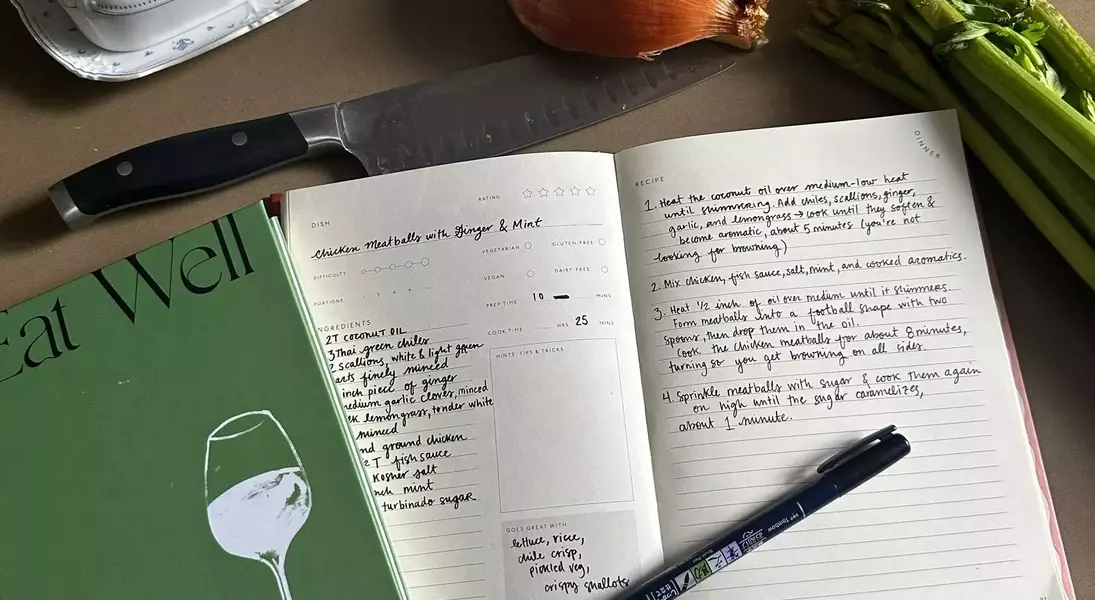 Eat Well
RATING
DISH
Chicken Meatballs with Ginger & Mint
DIFFICULTY
VEGETARIAN
GLUTEN FREE
VEGAN
DAIRY FREE
PORTIONS 1 2 4 6
PREP TIME 10 MINS
COOK TIME HRS 25 MINS
NGREDIENTS
2T coconut oil
3 Thai green chiles
scallions, white & light green
arts finely minced
inch piece of ginger
medium garlic cloves, minced
lemongrass, tender white
minced
nd ground chicken
2 T fish sauce
Kosher salt
mint
turbinado sugar
HINTS, TIPS & TRICKS
GOES GREAT WITH
lettuce, rice,
chile crisp,
pickled veg,
crispy shallots
DINNER
RECIPE
1. Heat the coconut oil over medium-low heat
until shimmering. Add chiles, scallions, ginger,
garlic, and lemongrass → cook until they soften &
become aromatic, about 5 minutes (you're not
looking for browning)
2. Mix chicken, fish sauce, salt, mint, and cooked aromatics.
3. Heat 1/2 inch of oil over medium until it shimmers.
Form meatballs into a football shape with two
spoons, then drop them in the oil.
Cook the chicken meatballs for about 8 minutes,
turning so you get browning on all sides.
4. Sprinkle meatballs with sugar & cook them again
on high until the sugar caramelizes,
about 1 minute.
Tombow